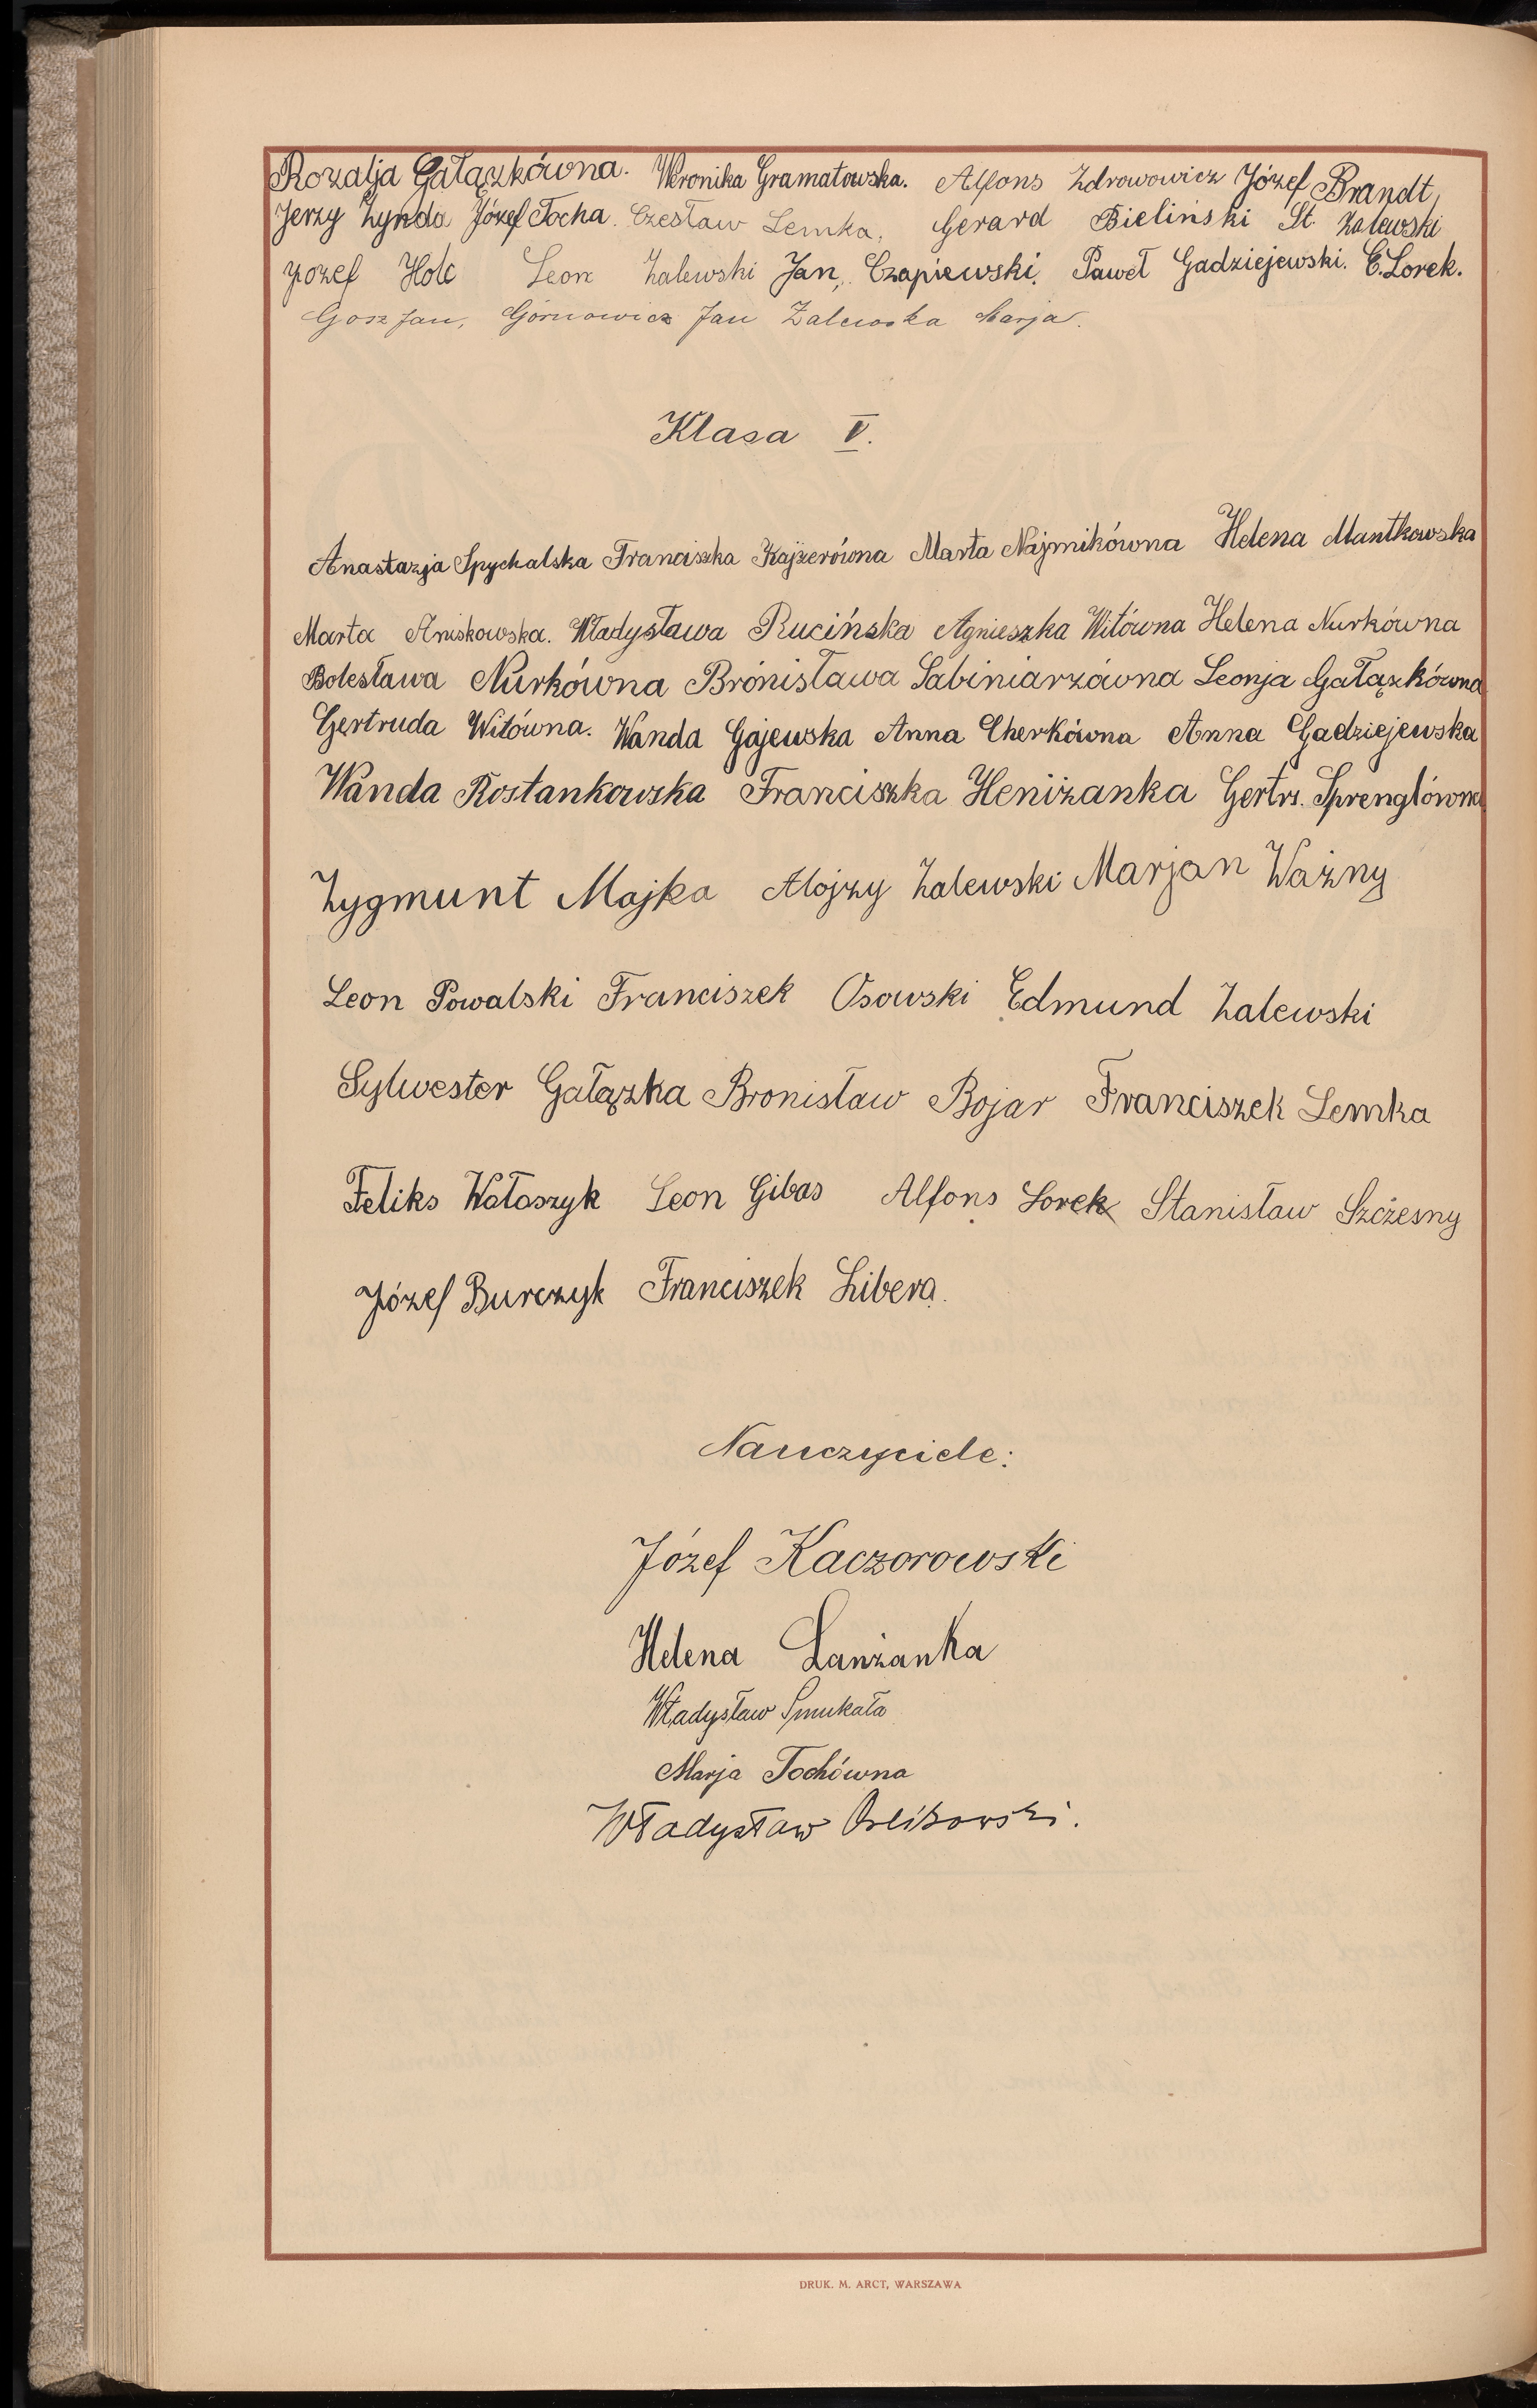 Rozalja Gałązkówna. Weronika Gramatowska. Alfons Zdrowowicz Józef Brandt,
Jerzy Zynda Józef Tocha. Czesław Lemka, Gerard Bieliński St. Zalewski
Józef Holc Leon Zalewski Jan, Czapiewski. Paweł Gadziejewski. E. Lorek.
Gosz Jan, Górnowicz Jan Zalewska Marja.
Klasa V.
Anastazja Spychalska Franciszka Kajzerówna Marta Najmikówna Helena Mantkowska
Marta Aniskowska. Władysława Rucińska Agnieszka Witówna Helena Nurkówna
Bolesława Nurkówna Bronisława Sabiniarzówna Leonja Gałązkówna
Gertruda Witówna. Wanda Gajewska Anna Cherkówna Anna Gadziejewska
Wanda Rostankowska Franciszka Heniżanka Gertr. Spreglówna
Zygmunt Majka Alojzy Zalewski Marjan Ważny
Leon Powalski Franciszek Osowski Edmund Zalewski
Sylwester Gałązka Bronisław Bojar Franciszek Lemka
Feliks Wołoszyk Leon Gibas Alfons Lorek Stanisław Szczesny
Józef Burczyk Franciszek Libera.
Nauczyciele:
Józef Kaczorowski
Helena Lanżanka
Władysław Smukała
Marja Tochówna
Władysław Orlikowski.
DRUK. M. ARCT, WARSZAWA